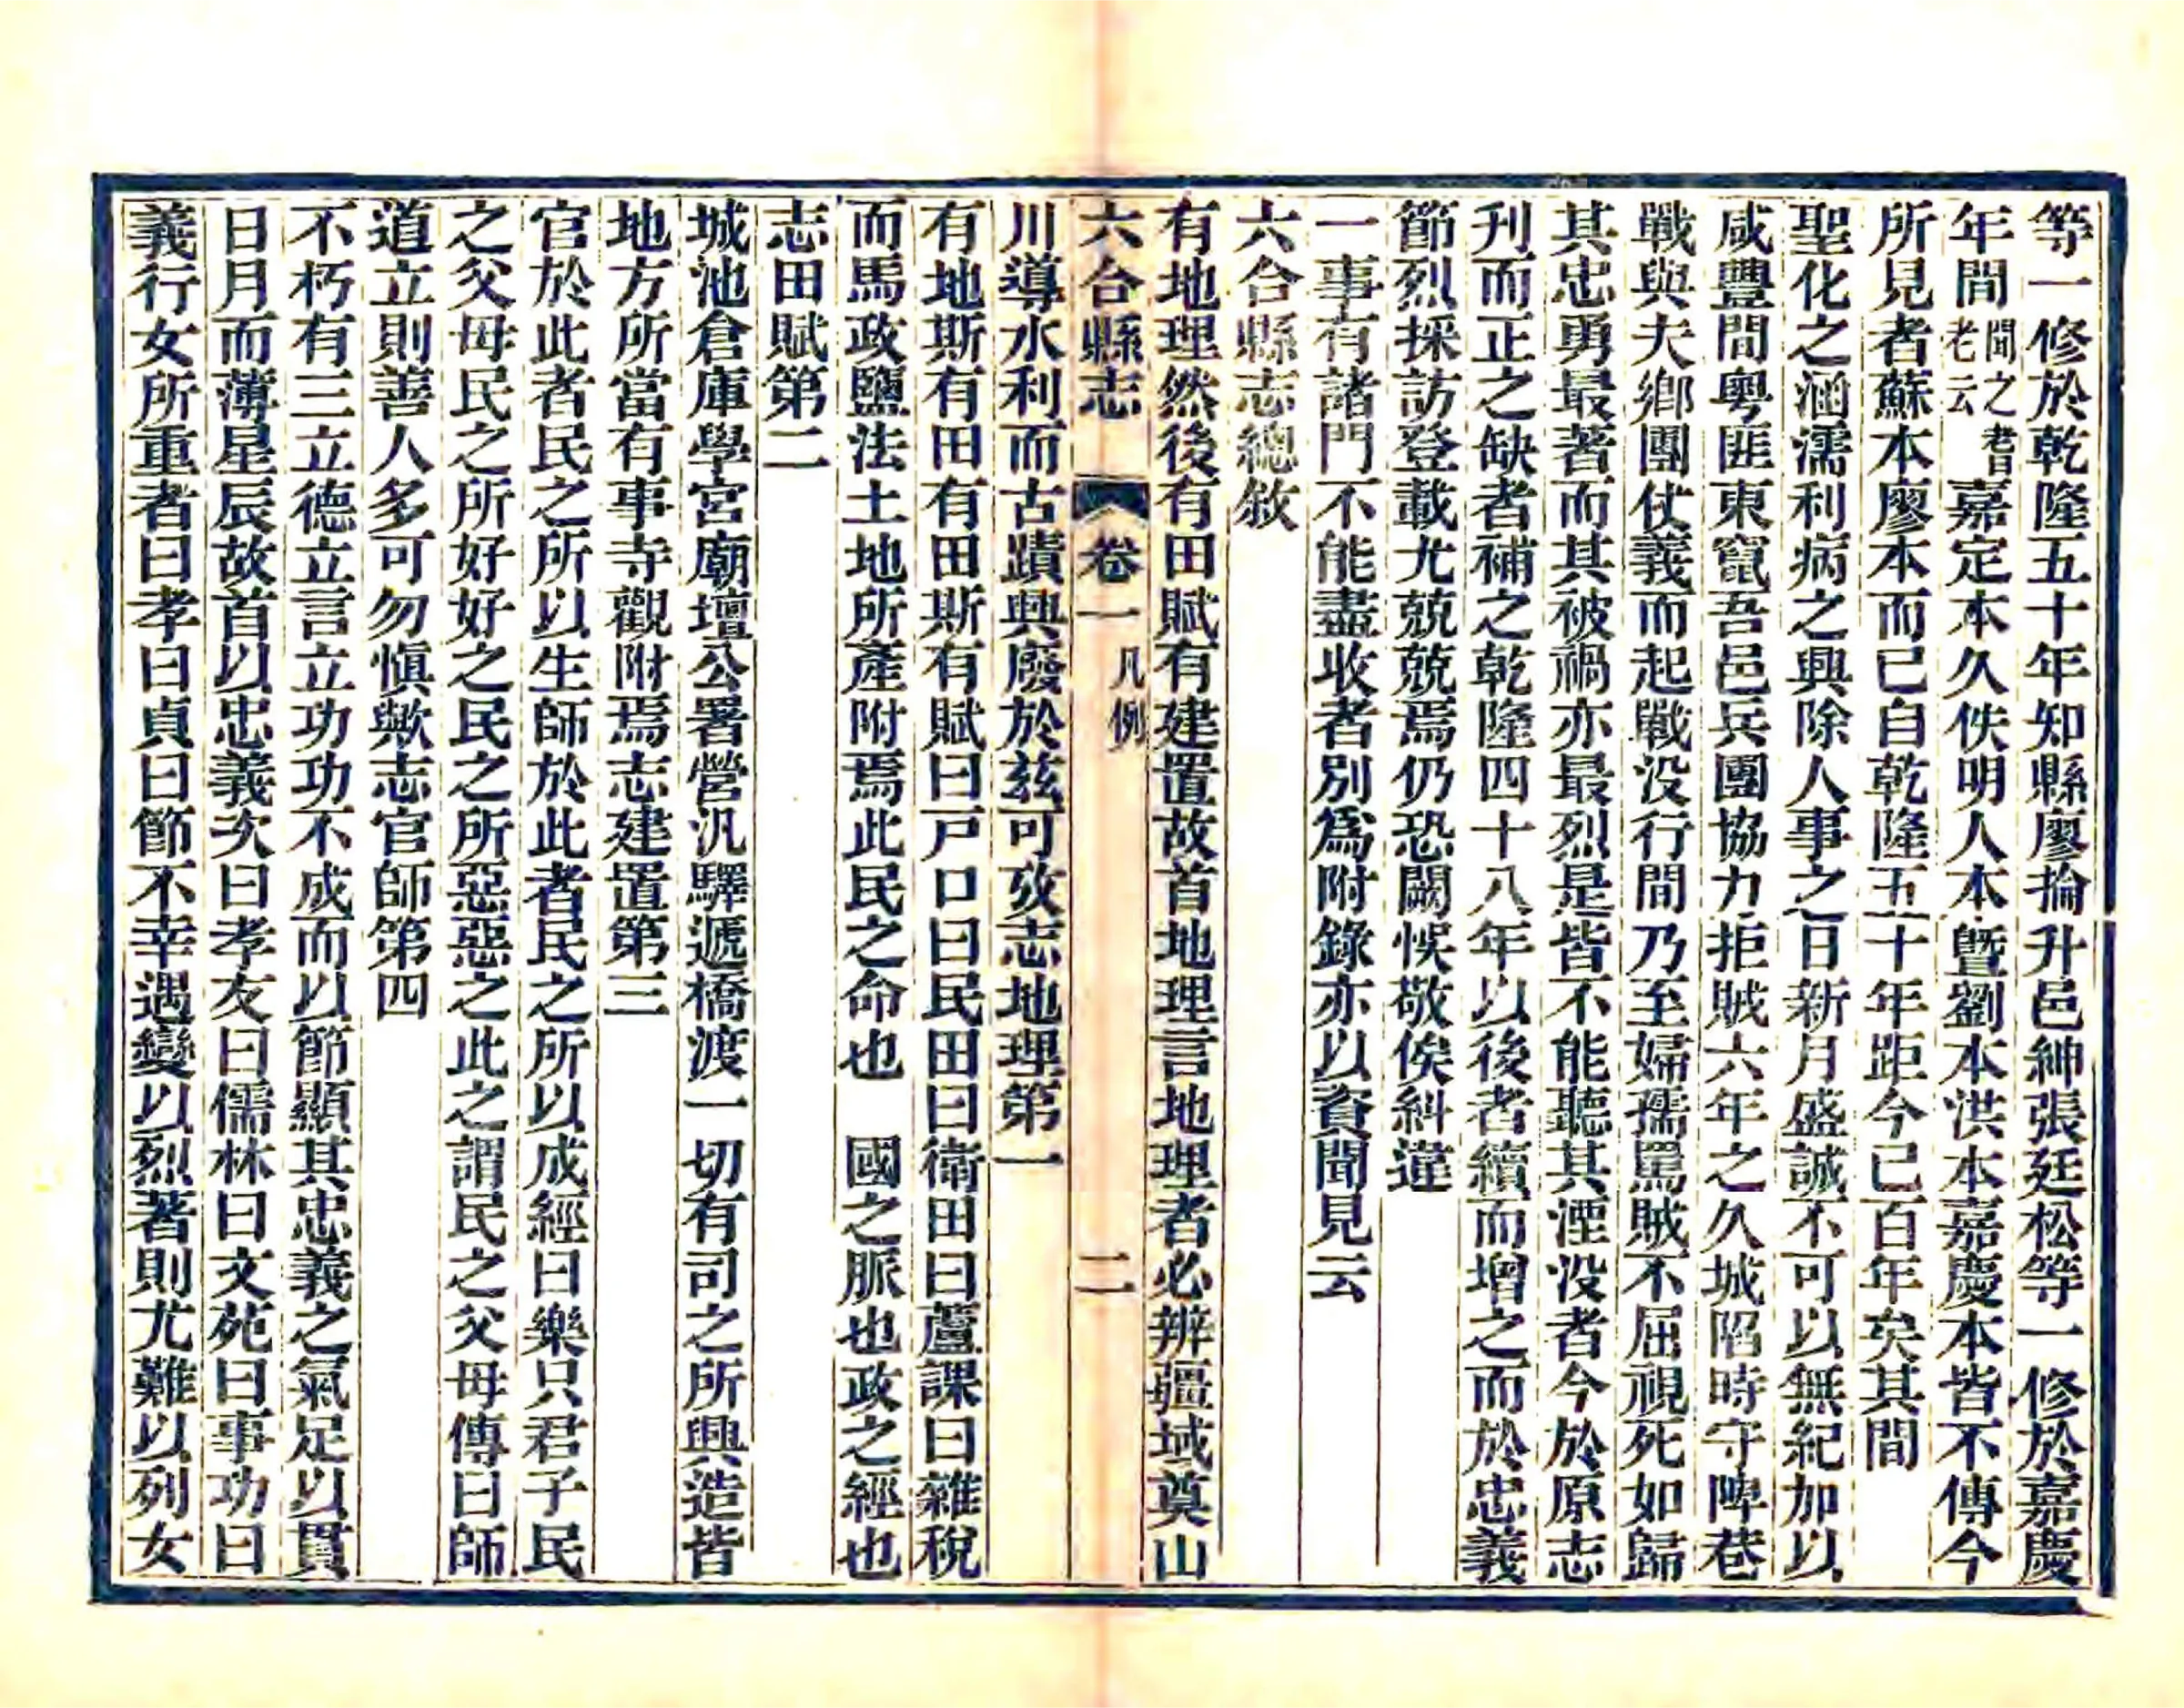 等一修於乾隆五十年知縣廖掄升邑紳張廷松等一修於嘉慶
年間聞之耆老云嘉定本久佚明人本曁劉本洪本嘉慶本皆不傳今
所見者蘇本廖本而已自乾隆五十年距今已百年矣其間
聖化之涵濡利病之興除人事之日新月盛誠不可以無紀加以
咸豐間粵匪東竄吾邑兵團協力拒賊六年之久城陷時守陴巷
戰與夫鄉團仗義而起戰没行間乃至婦孺罵賊不屈視死如歸
其忠勇最著而其被禍亦最烈是皆不能聽其湮没者今於原志
刋而正之缺者補之乾隆四十八年以後者續而增之而於忠義
節烈採訪登載尤兢兢焉仍恐闕悞敬俟糾違
一事有諸門不能盡收者別爲附錄亦以資聞見云
六合縣志總敘
有地理然後有田賦有建置故首地理言地理者必辨疆域奠山
六合縣志 卷一 凡例 二
川導水利而古蹟興廢於兹可攷志地理第一
有地斯有田有田斯有賦曰戸口曰民田曰衛田曰蘆課曰雜稅
而馬政鹽法土地所產附焉此民之命也 國之脈也政之經也
志田賦第二
城池倉庫學宮廟壇公署營汛驛遞橋渡一切有司之所興造皆
地方所當有事寺觀附焉志建置第三
官於此者民之所以生師於此者民之所以成經曰樂只君子民
之父母民之所好好之民之所惡惡之此之謂民之父母傳曰師
道立則善人多可勿愼歟志官師第四
不朽有三立德立言立功功不成而以節顯其忠義之氣足以貫
日月而薄星辰故首以忠義次曰孝友曰儒林曰文苑曰事功曰
義行女所重者曰孝曰貞曰節不幸遇變以烈著則尤難以列女